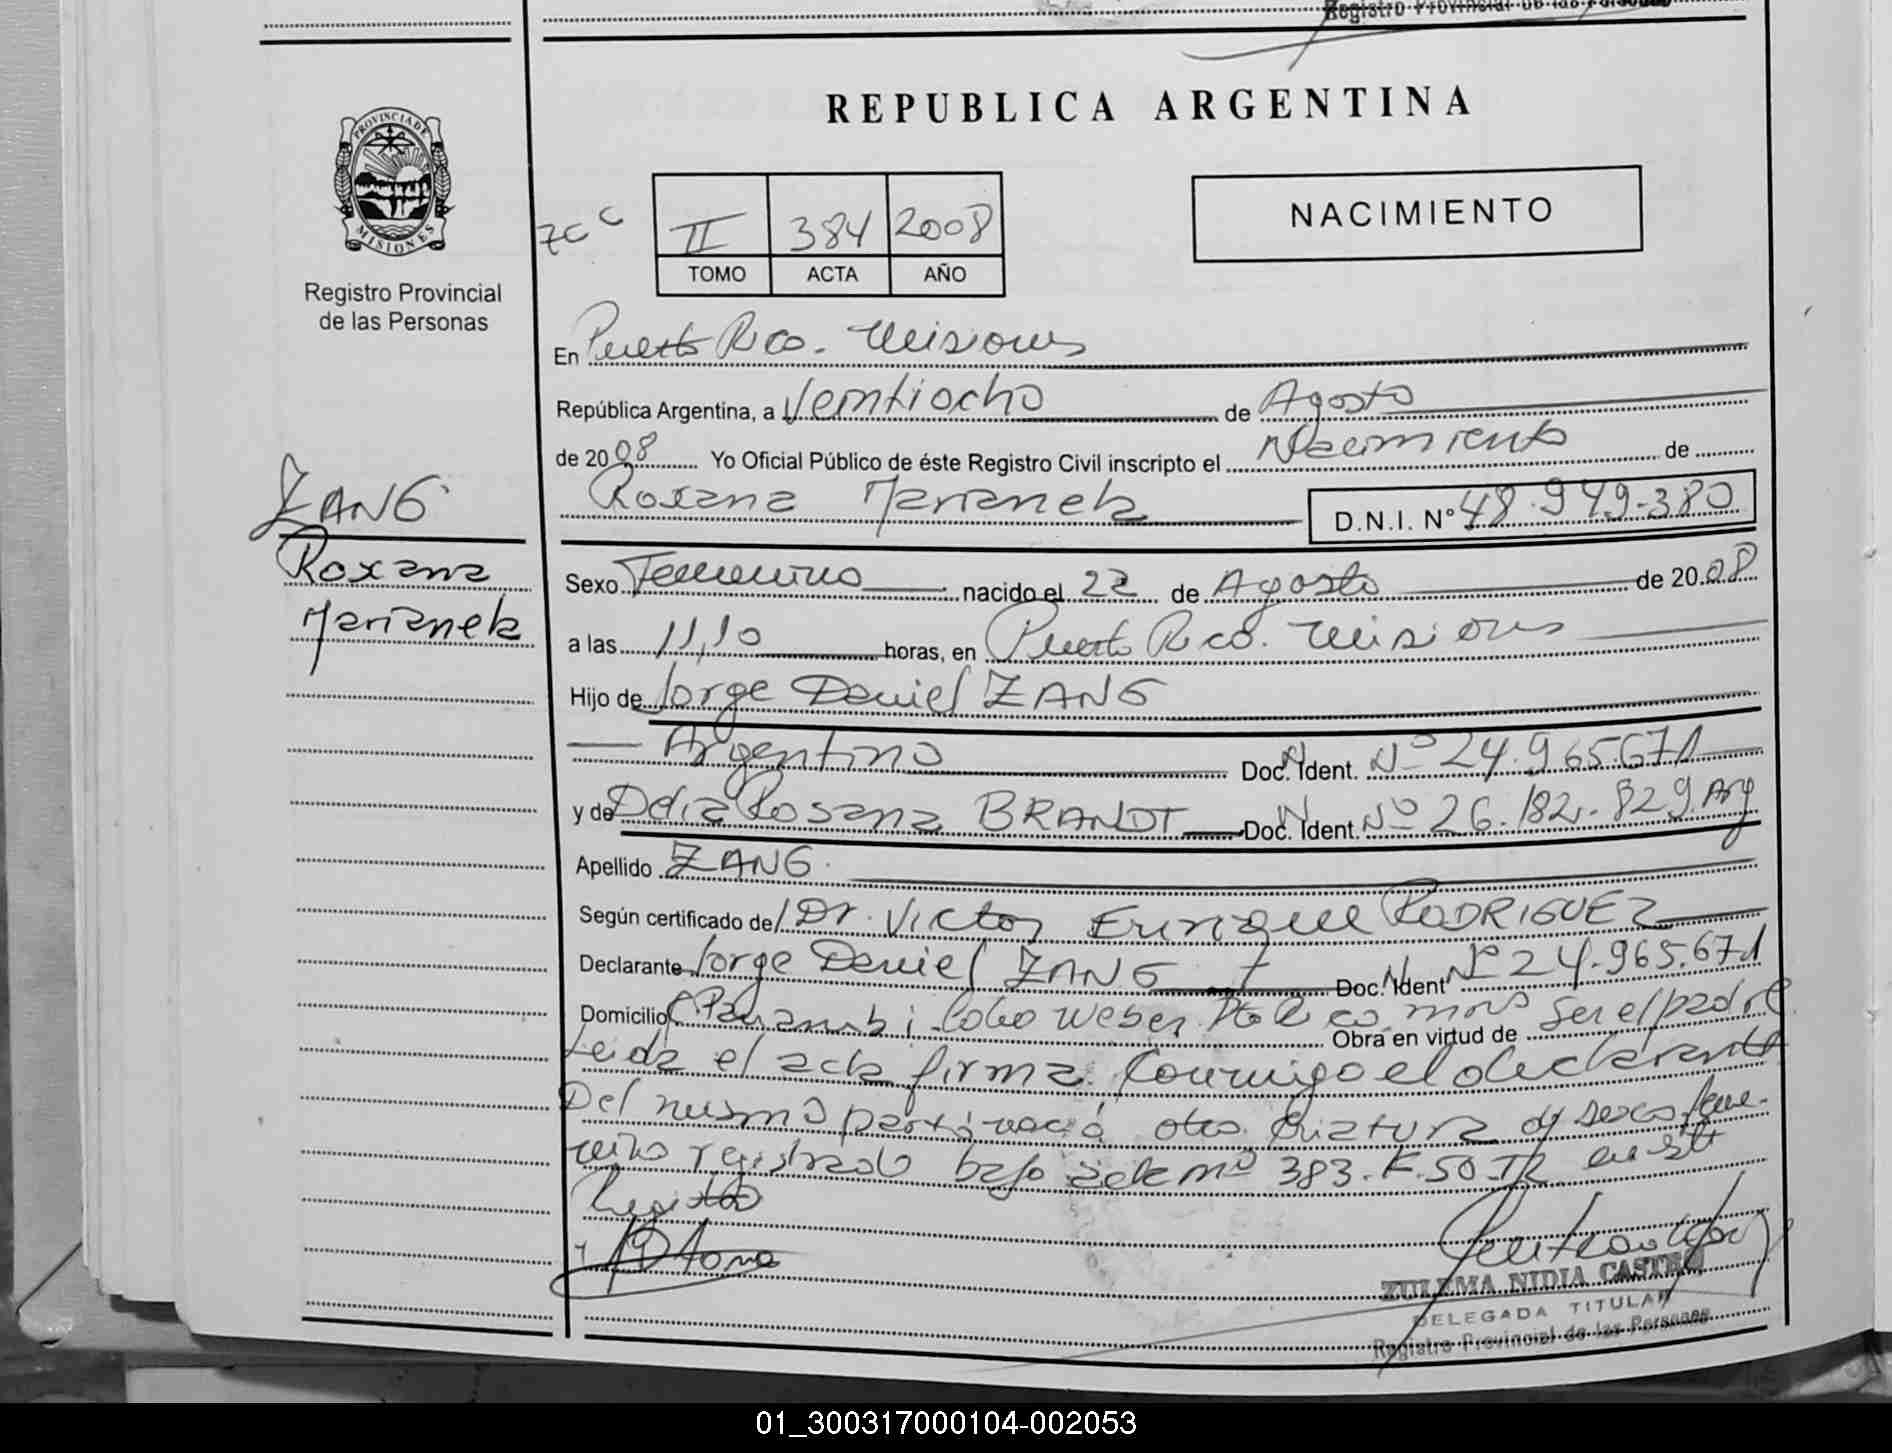 Registro Provincial de las Personas
REPUBLICA ARGENTINA
PROVINCIA DE
MISIONES
Registro Provincial
de las Personas
II 384 2008
TOMO ACTA AÑO
NACIMIENTO
En Puerto Rico. Misiones
República Argentina, a Veintiocho de Agosto
de 2008 Yo Oficial Público de éste Registro Civil inscripto el Nacimiento de
Roxana Marianela D.N.I. Nº 48.949.380
ZANG
Roxana
Marianela
Sexo Femenino nacido el 22 de Agosto de 2008
a las 11,10 horas, en Puerto Rico. Misiones
Hijo de Jorge Daniel ZANG
Argentino Doc. N Ident. Nº 24.965.671
y de Delia Rosana BRANDT Doc. N Ident. Nº 26.182.829 Arg
Apellido ZANG.
Según certificado del Dr. Victor Enrique RODRIGUEZ
Declarante Jorge Daniel ZANG Doc. N Ident Nº 24.965.671
Domicilio Panambi Weber Obra en virtud de ser el padre
Leida el acta firma Conmigo el declarante
Del mismo parto nació otra Criatura de sexo feme-
nino registrado bajo acta nº 383. F. 50. este
Registro
ZULEMA NIDIA CASTRO
DELEGADA TITULAR
Registro Provincial de las Personas
01_300317000104-002053